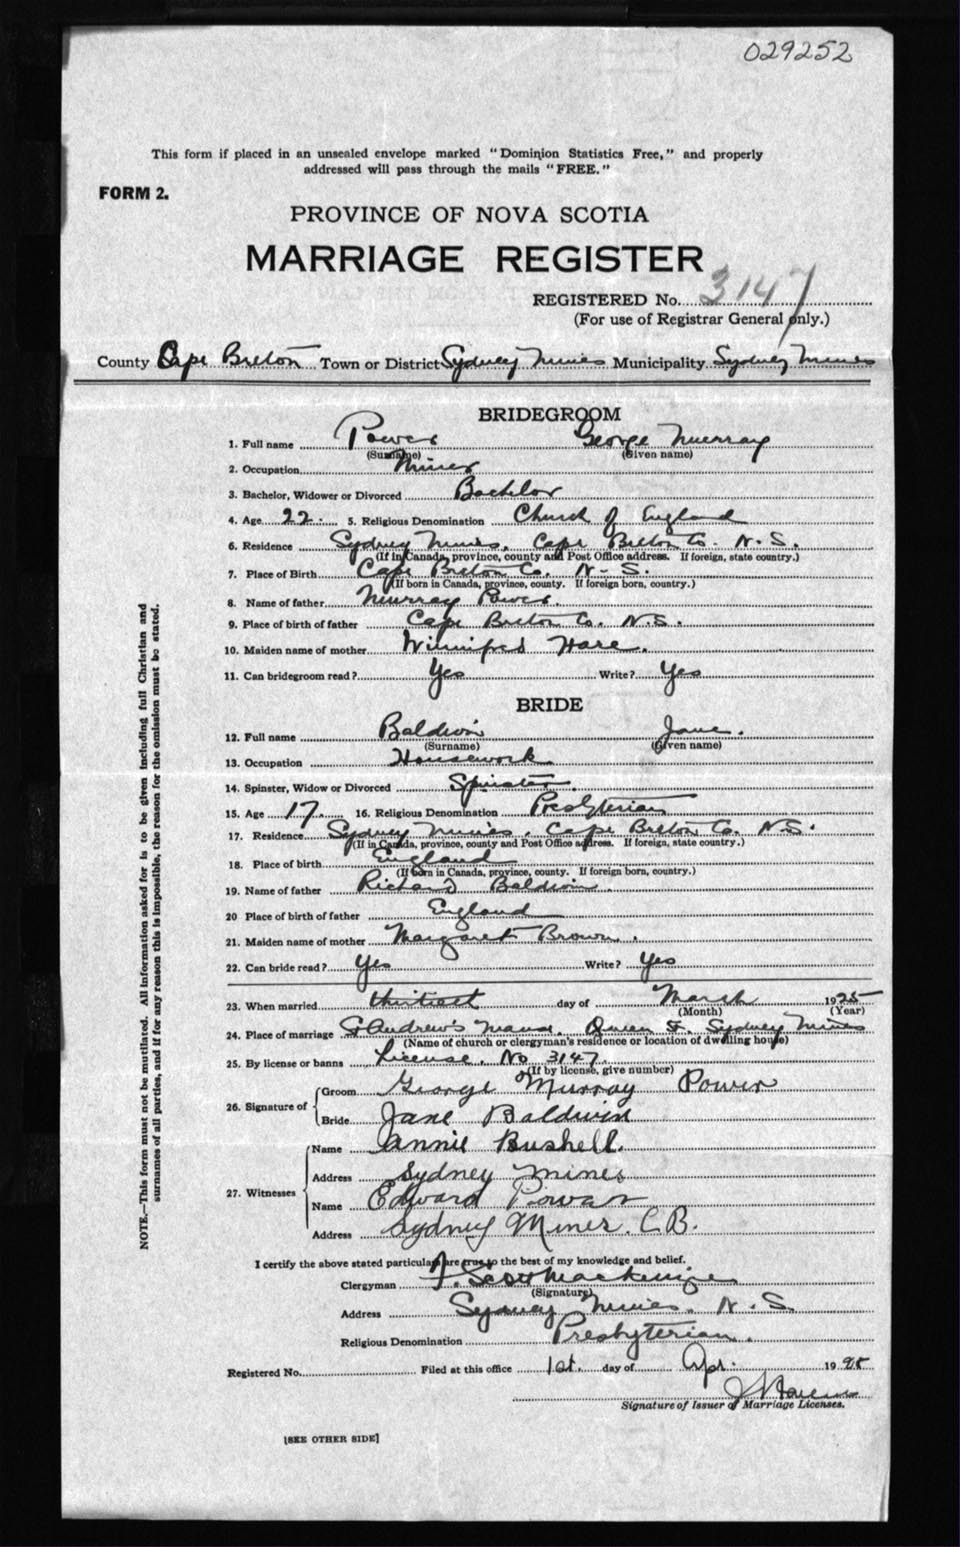 029252
This form if placed in an unsealed envelope marked "Dominion Statistics Free," and properly
addressed will pass through the mails "FREE."
FORM 2.
PROVINCE OF NOVA SCOTIA
MARRIAGE REGISTER
REGISTERED No. 3147
(For use of Registrar General only.)
County Cape Breton Town or District Sydney Mines Municipality Sydney Mines
BRIDEGROOM
1. Full name Power George Murray
(Surname) (Given name)
2. Occupation Miner
3. Bachelor, Widower or Divorced Bachelor
4. Age 22. 5. Religious Denomination Church of England
6. Residence Sydney Mines, Cape Breton Co. N.S.
(If in Canada, province, county and Post Office address. If foreign, state country.)
7. Place of Birth Cape Breton Co. N.S.
(If born in Canada, province, county. If foreign born, country.)
8. Name of father Murray Power.
9. Place of birth of father Cape Breton Co. N.S.
10. Maiden name of mother Winnifred Hare.
11. Can bridegroom read? Yes Write? Yes
BRIDE
12. Full name Baldwin Jane.
(Surname) (Given name)
13. Occupation Housework
14. Spinster, Widow or Divorced Spinster.
15. Age 17. 16. Religious Denomination Presbyterian
17. Residence Sydney Mines, Cape Breton Co. N.S.
(If in Canada, province, county and Post Office address. If foreign, state country.)
18. Place of birth England
(If born in Canada, province, county. If foreign born, country.)
19. Name of father Richard Baldwin.
20 Place of birth of father England
21. Maiden name of mother Margaret Brown.
22. Can bride read? Yes Write? Yes
23. When married thirtieth day of March 1925
(Month) (Year)
24. Place of marriage St Andrew's Manse, Queen St. Sydney Mines
(Name of church or clergyman's residence or location of dwelling house)
25. By license or banns License. No 3147.
(If by license, give number)
26. Signature of Groom George Murray Power
Bride Jane Baldwin
27. Witnesses Name Annie Bushell.
Address Sydney Mines
Name Edward Power
Address Sydney Mines. C.B.
I certify the above stated particulars are true to the best of my knowledge and belief.
Clergyman F. Scott Mackenzie
(Signature)
Address Sydney Mines, N.S.
Religious Denomination Presbyterian.
Registered No. Filed at this office 1st. day of Apr. 1925
Signature of Issuer of Marriage Licenses.
[SEE OTHER SIDE]
NOTE.—This form must not be mutilated. All information asked for is to be given including full Christian and
surnames of all parties, and if for any reason this is impossible, the reason for the omission must be stated.